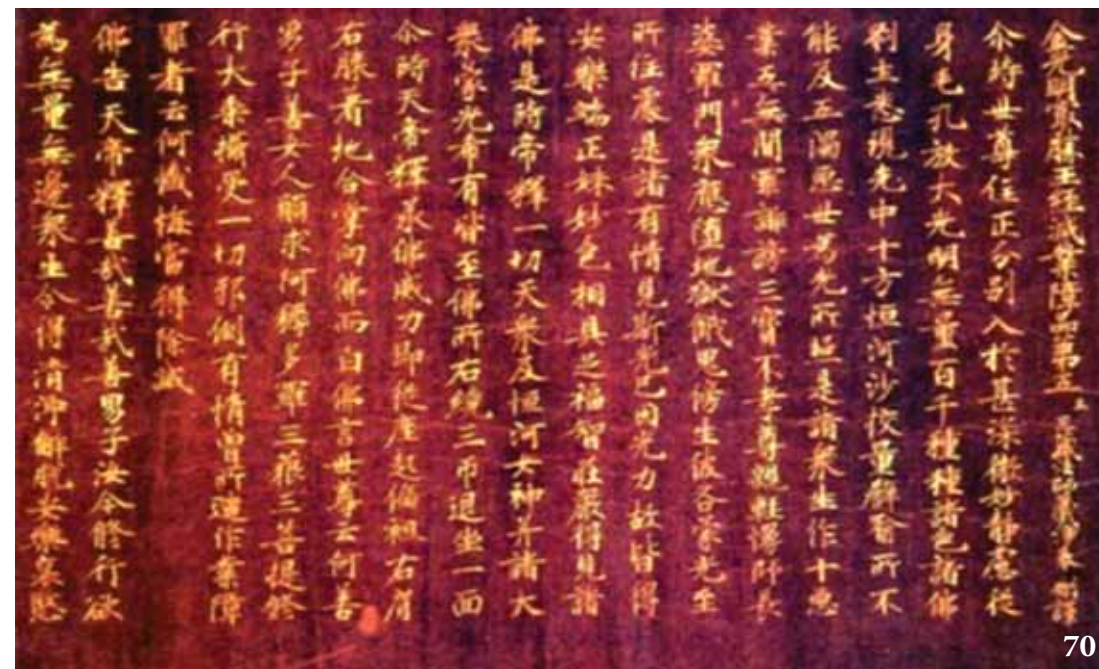 金光明最勝王經滅業障品第五 三藏法師義淨奉 制譯
尒時世尊住正分別入於甚深微妙靜慮從
身毛孔放大光明無量百千種種諸色諸佛
剎土悉現光中十方恒河沙校量譬喻所不
能及五濁惡世為光所照是諸眾生作十惡
業五無間罪誹謗三寶不孝尊親輕慢師長
婆羅門眾應墮地獄餓鬼傍生彼各蒙光至
所住處是諸有情見斯光已因光力故皆得
安樂端正姝妙色相具足福智莊嚴得見諸
佛是時帝釋一切天眾及恒河女神并諸大
眾蒙光希有皆至佛所右繞三帀退坐一面
尒時天帝釋承佛威力即從座起偏袒右肩
右膝著地合掌向佛而白佛言世尊云何善
男子善女人願求阿耨多羅三藐三菩提修
行大乘攝受一切邪倒有情曾所造作業障
罪者云何懺悔當得除滅
佛告天帝釋善哉善哉善男子汝今修行欲
為無量無邊眾生令得清淨解脫安樂哀愍
70